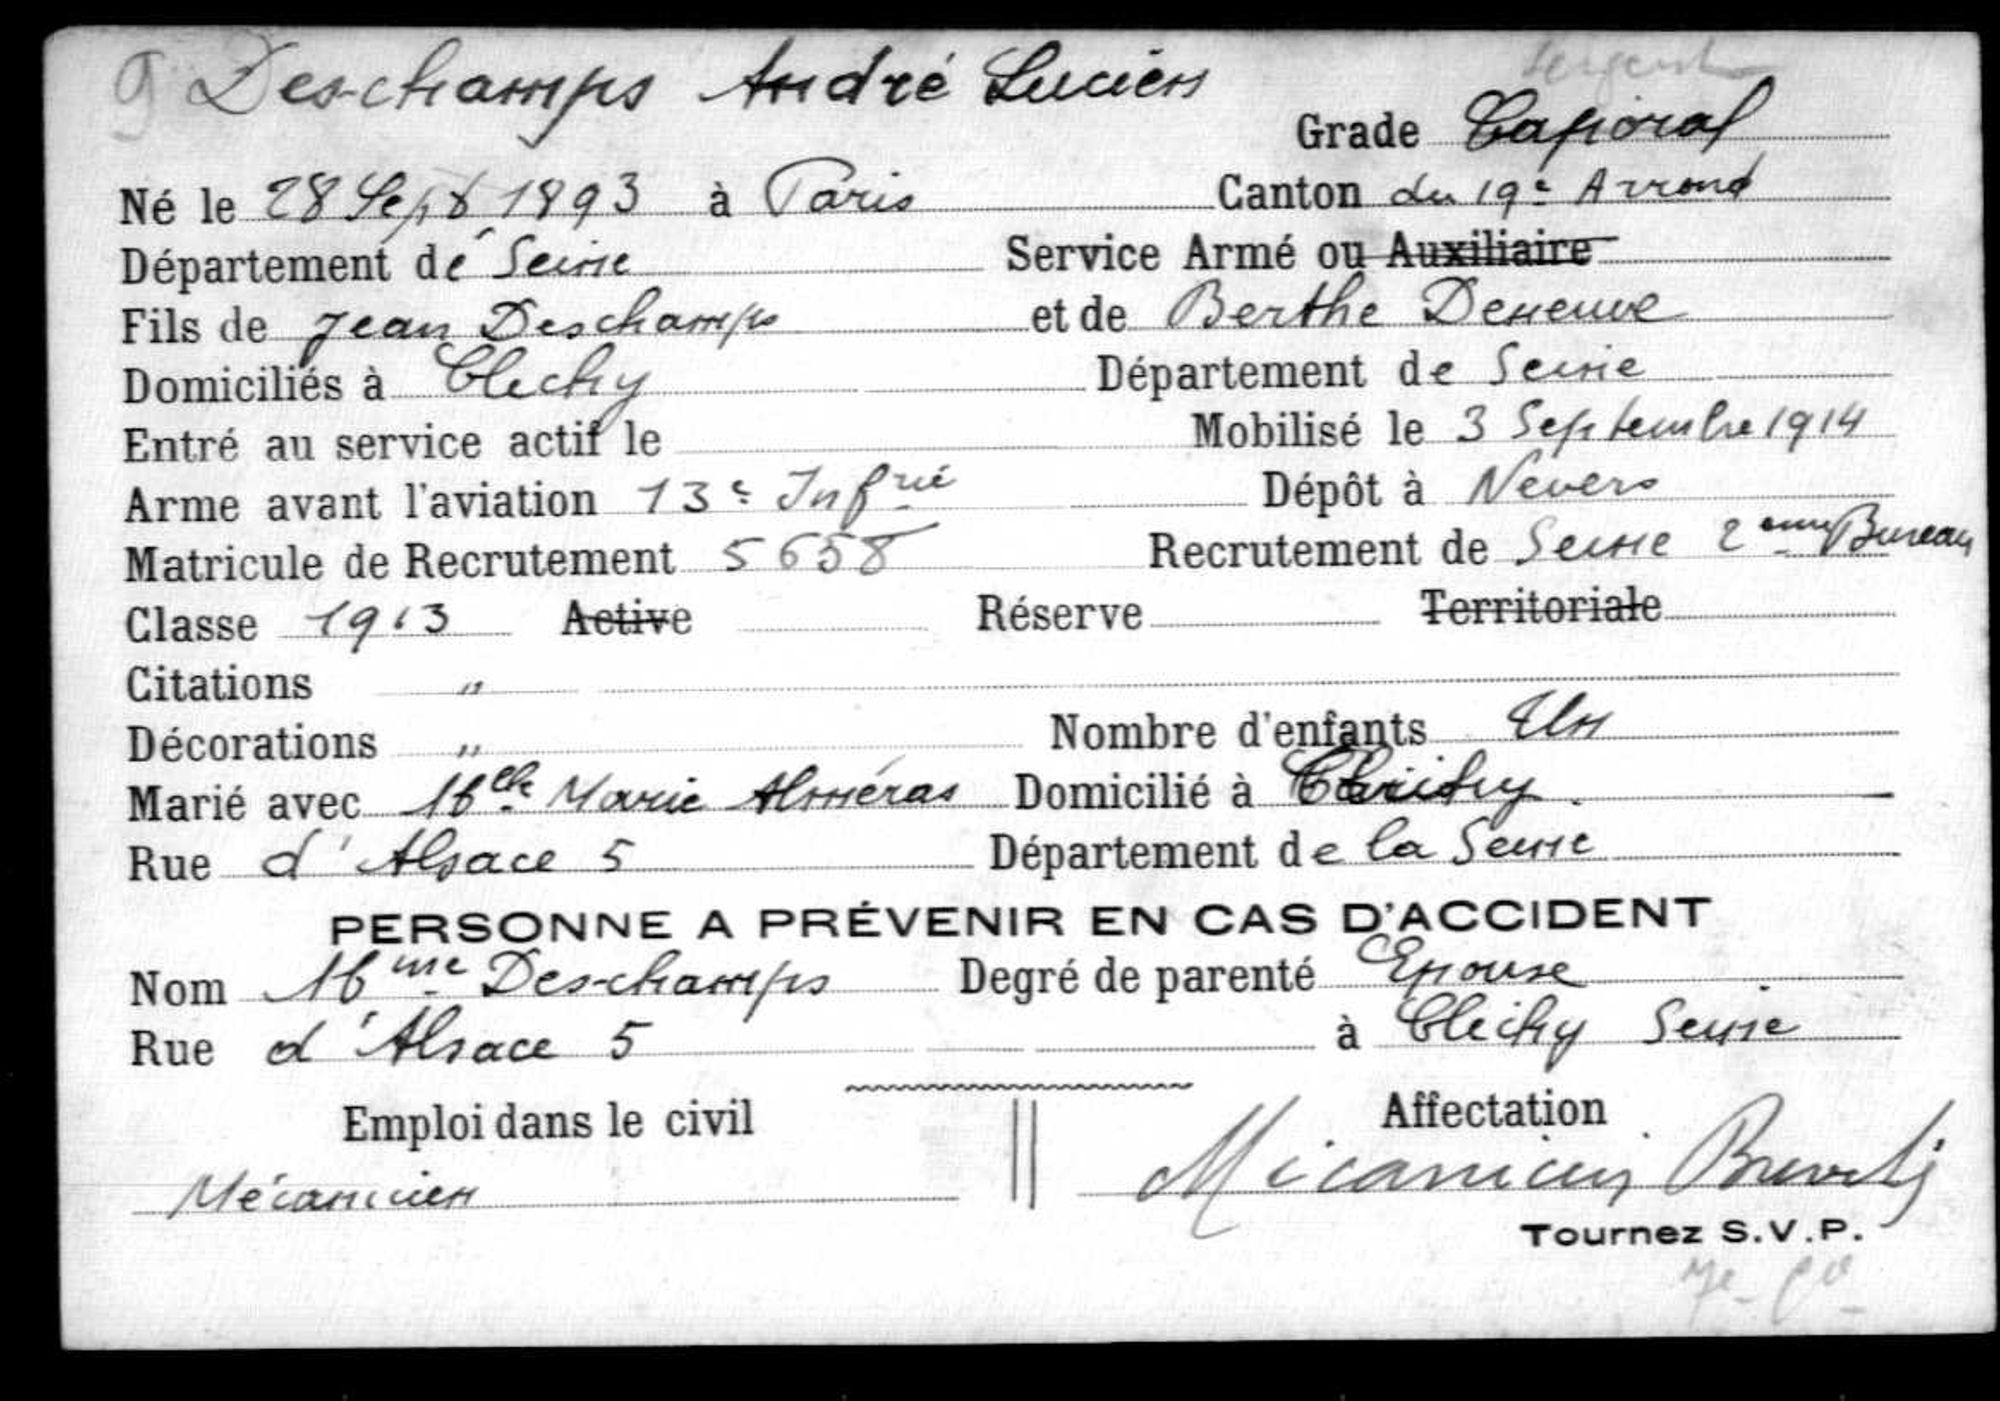 Deschamps André Lucien
Sergent
Grade Caporal
Né le 28 Sept 1893 à Paris Canton du 19e Arrond
Département de Seine Service Armé ou Auxiliaire
Fils de Jean Deschamps et de Berthe Deneuve
Domiciliés à Clichy Département de Seine
Entré au service actif le Mobilisé le 3 Septembre 1914
Arme avant l'aviation 13e Infrie Dépôt à Nevers
Matricule de Recrutement 5658 Recrutement de Seine 2eme Bureau
Classe 1913 Active Réserve Territoriale
Citations "
Décorations " Nombre d'enfants Un
Marié avec Melle Marie Alméras Domicilié à Clichy
Rue d'Alsace 5 Département de la Seine
PERSONNE A PRÉVENIR EN CAS D'ACCIDENT
Nom Mme Deschamps Degré de parenté Epouse
Rue d'Alsace 5 à Clichy Seine
Emploi dans le civil Affectation
Mécanicien Mécanicien
Tournez S.V.P.